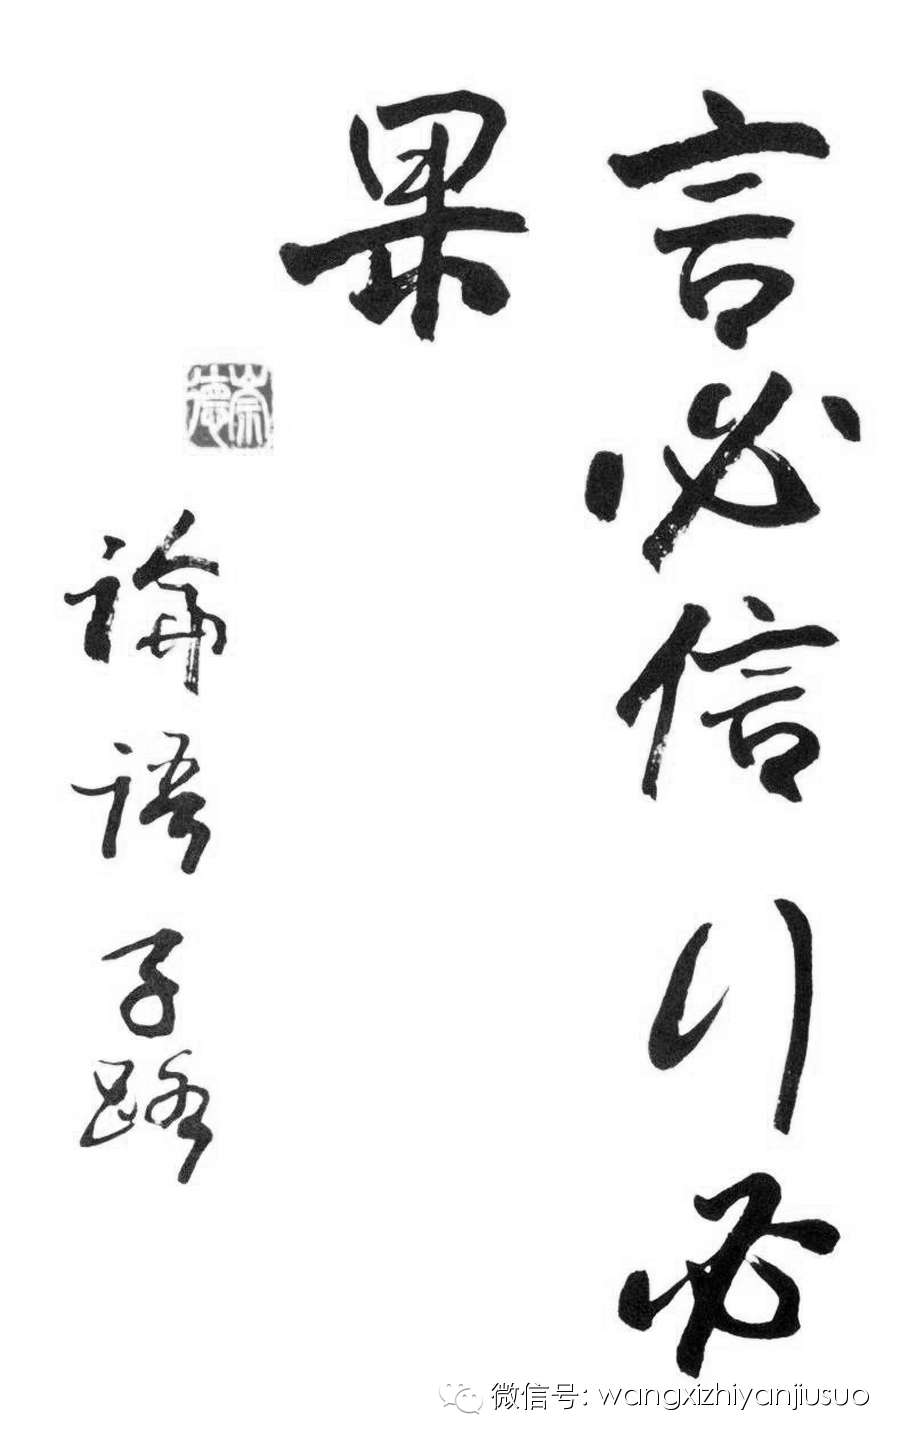 言必信行必
果
崇德
論語子路
微信号: wangxizhiyanjiusuo